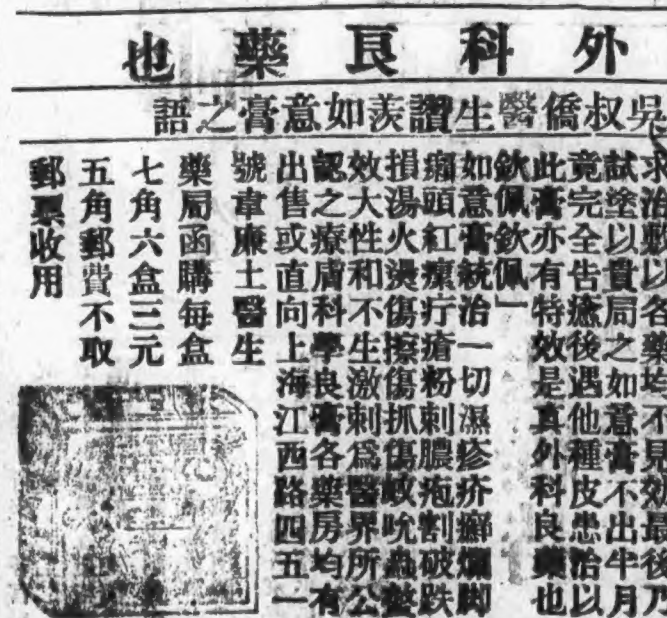 外科良藥也
吳叔僑醫生讚羨如意膏之語
求治敷以各藥均不見效最後乃
試塗以貴局之如意膏不出半月
竟完全告癒後遇他種皮患治以
此膏亦有特效是真外科良藥也
欽佩欽佩」
如意膏統治一切濕疹疥癬爛脚
癩頭紅瘰疔瘡粉刺膿疱割破跌
損湯火燙傷擦傷抓傷蚊吮蟲螫
效大性和不生激刺爲醫界所公
認之療膚科學良膏各藥房均有
出售或直向上海江西路四五一
號韋廉士醫生
藥局函購每盒
七角六盒三元
五角郵費不取
郵票收用